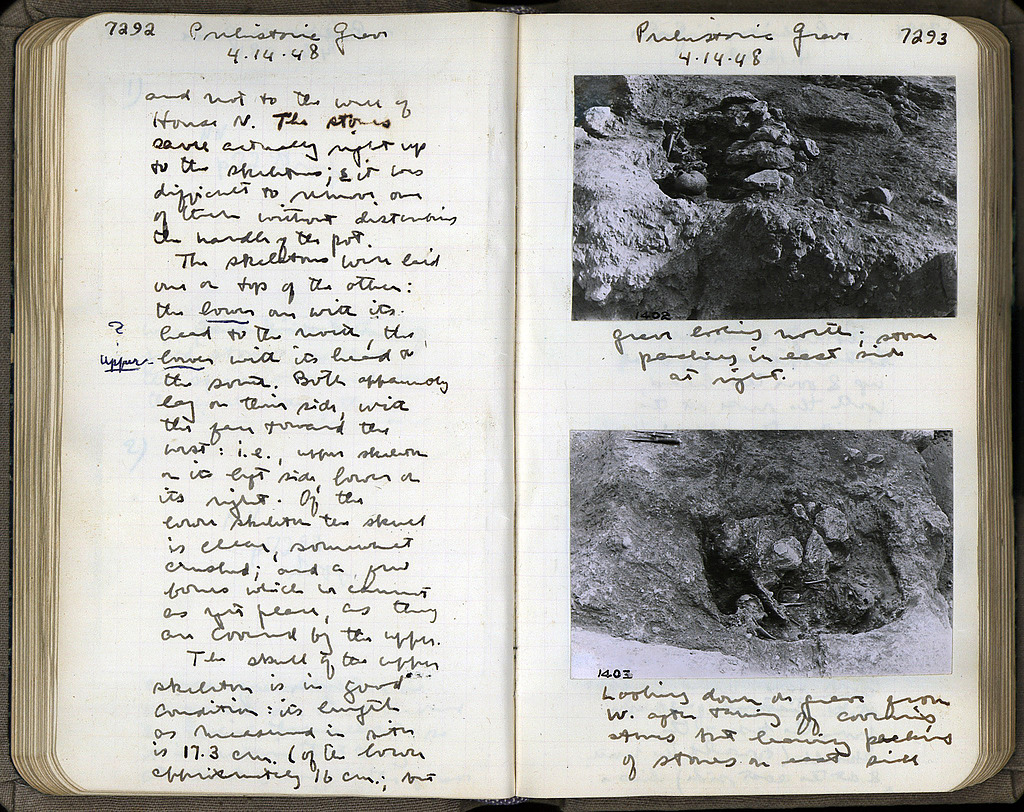 7292 Prehistoric Grave
4.14.48
and not to the wall of
House N. The stones
came actually right up
to the skeletons; & it was
difficult to remove one
of them without disturbing
the handle of the pot.
The skeletons were laid
one on top of the other:
the lower one with its
head to the north, the
? upper lower with its head to
the south. Both apparently
lay on their side, with
the face toward the
west: i.e., upper skeleton
on its left side, lower on
its right. Of the
lower skeleton the skull
is clear, somewhat
crushed; and a few
bones which we cannot
as yet place, as they
are covered by the upper.
The skull of the upper
skeleton is in good
condition: its length
as measured in situ
is 17.3 cm. (of the lower
approximately 16 cm.; but
Prehistoric Grave 7293
4.14.48
1402
grave looking north; stone
packing in east side
at right.
1403
Looking down on grave from
W. after taking off covering
stones but leaving packing
of stones on east side